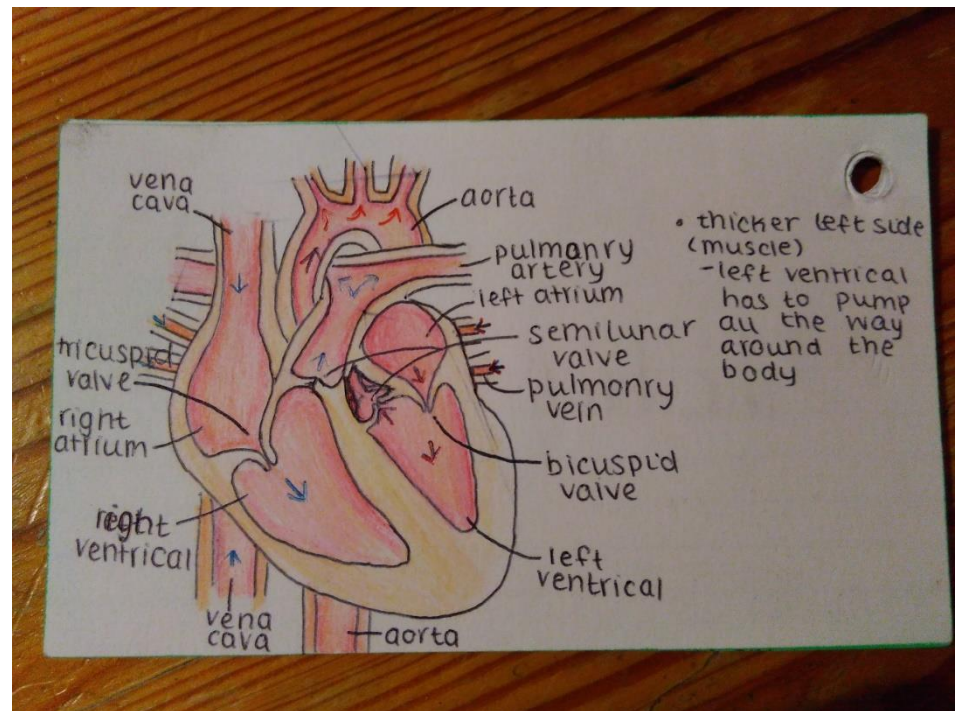 vena
cava
aorta
pulmanry
artery
left atrium
semilunar
valve
pulmonry
vein
bicuspid
valve
left
ventrical
aorta
vena
cava
right
ventrical
right
atrium
tricuspid
valve
• thicker left side
(muscle)
-left ventrical
has to pump
all the way
around the
body